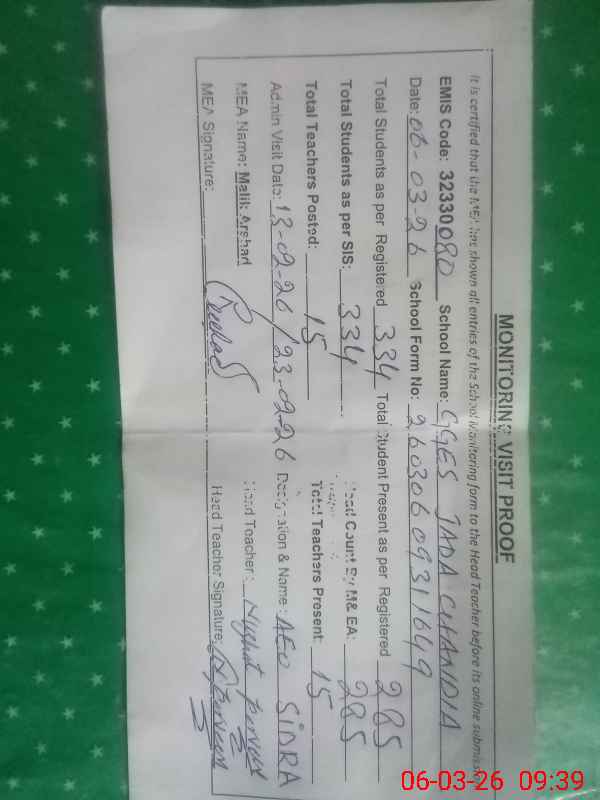 MONITORING VISIT PROOF
It is certified that the MEA has shown all entries of the School Monitoring form to the Head Teacher before its online submission
EMIS Code: 32330080 School Name: GGES JADA CHANDIA
Date: 06-03-26 School Form No: 26030609311649
Total Students as per Registered 334 Total Student Present as per Registered 285
Total Students as per SIS: 334 Head Count By M& EA: 285
Total Teachers Posted: 15 Total Teachers Present: 15
Admin Visit Date: 13-02-26 / 23-02-26 Designation & Name: AEO SIDRA
MEA Name: Malik Arshad Head Teacher: Nighat Parveen
MEA Signature: Head Teacher Signature:
06-03-26 09:39